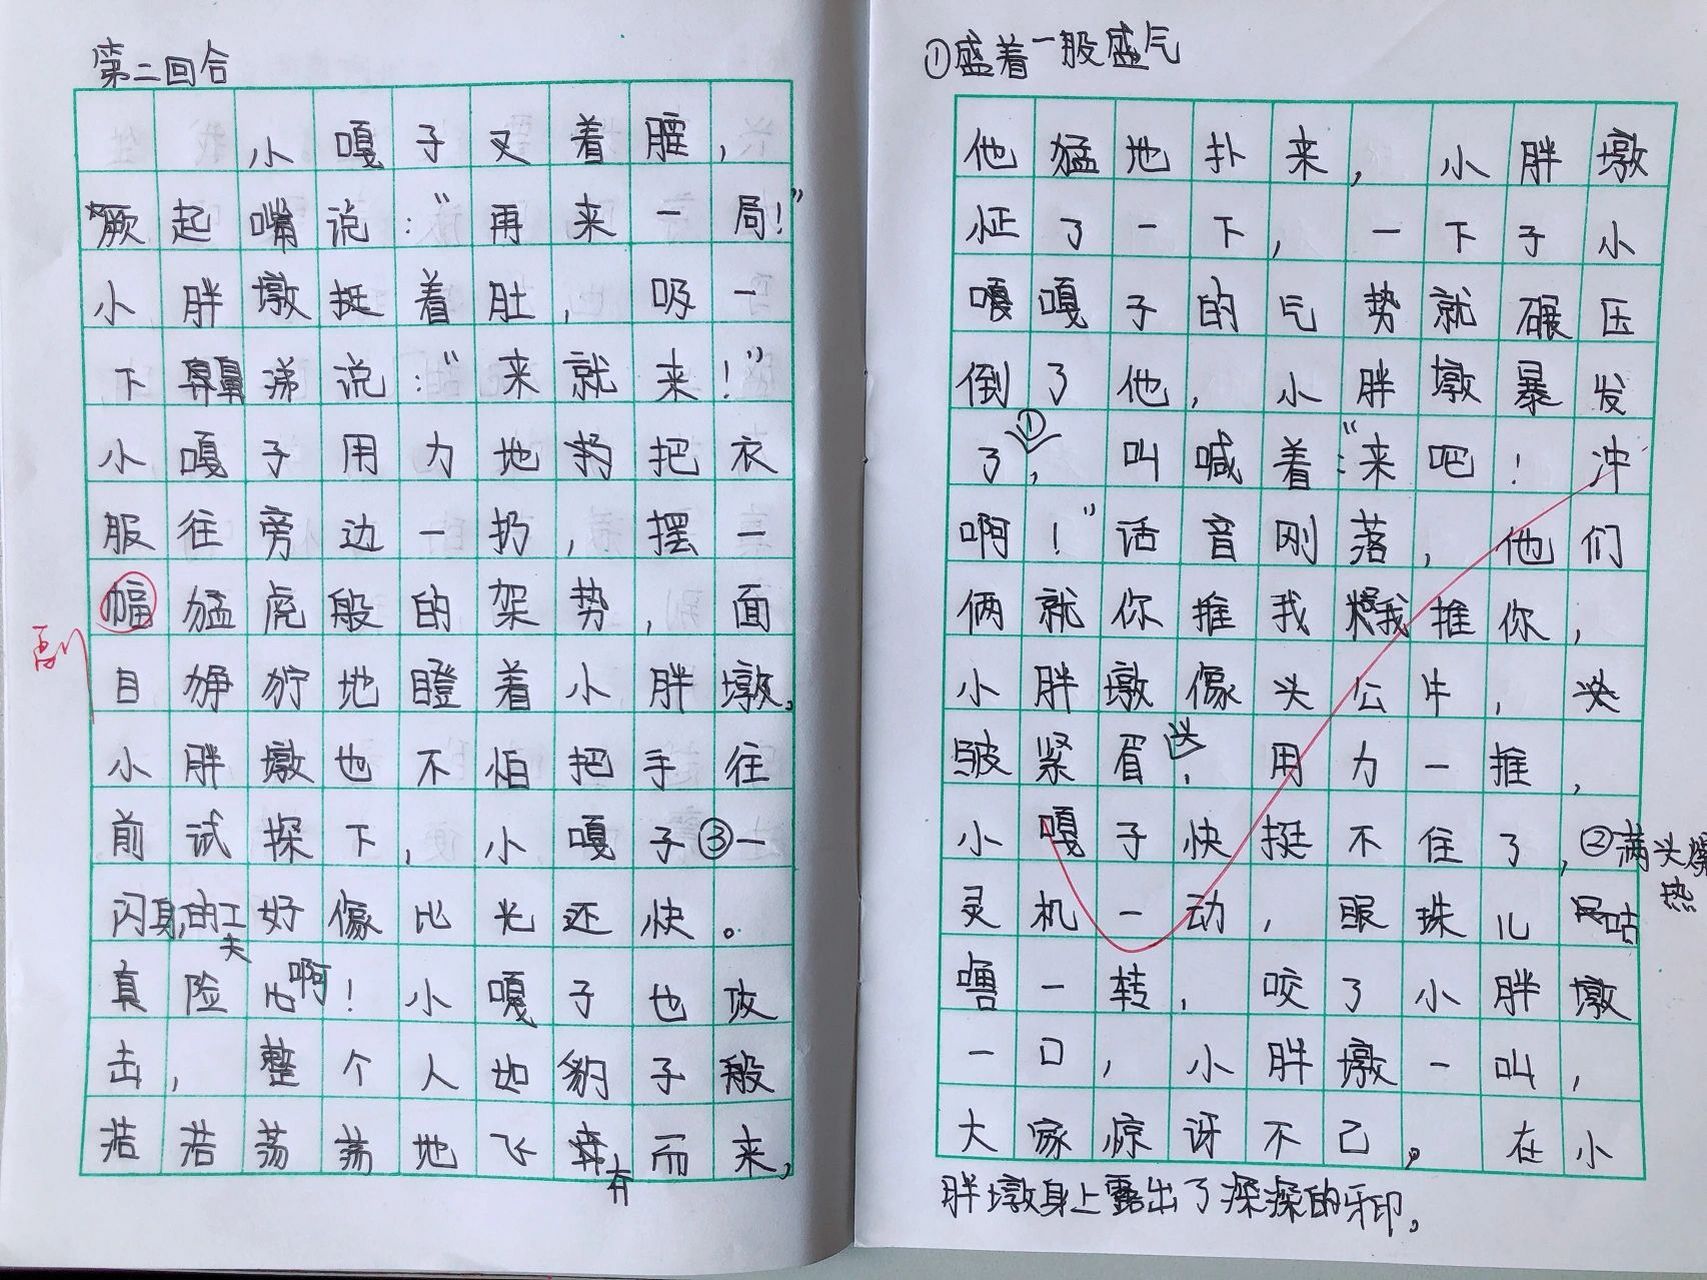 第二回合
小嘎子又着腰，
撅起嘴说：“再来一局！”
小胖墩挺着肚，吸一
下鼻涕说：“来就来！”
小嘎子用力地把衣
服往旁边一扔，摆一
幅猛虎般的架势，面
副
目狰狞地瞪着小胖墩。
小胖墩也不怕把手往
前试探下，小嘎子③一
闪身，的工夫好像比光还快。
真险啊！小嘎子也攻
击，整个人如豹子般
浩浩荡荡地飞奔而来，
①盛着一股盛气
他猛地扑来，小胖墩
怔了一下，一下子小
嘎嘎子的气势就碾压
倒了他，小胖墩暴发
了①，叫喊着：“来吧！冲
啊！”话音刚落，他们
俩就你推我我推你，
小胖墩像头公牛，
皱紧眉头，用力一推，
小嘎子快挺不住了，②满头爆热
灵机一动，眼珠儿咕
噜一转，咬了小胖墩
一口，小胖墩一叫，
大家惊讶不已。在小
胖墩身上露出了深深的牙印。